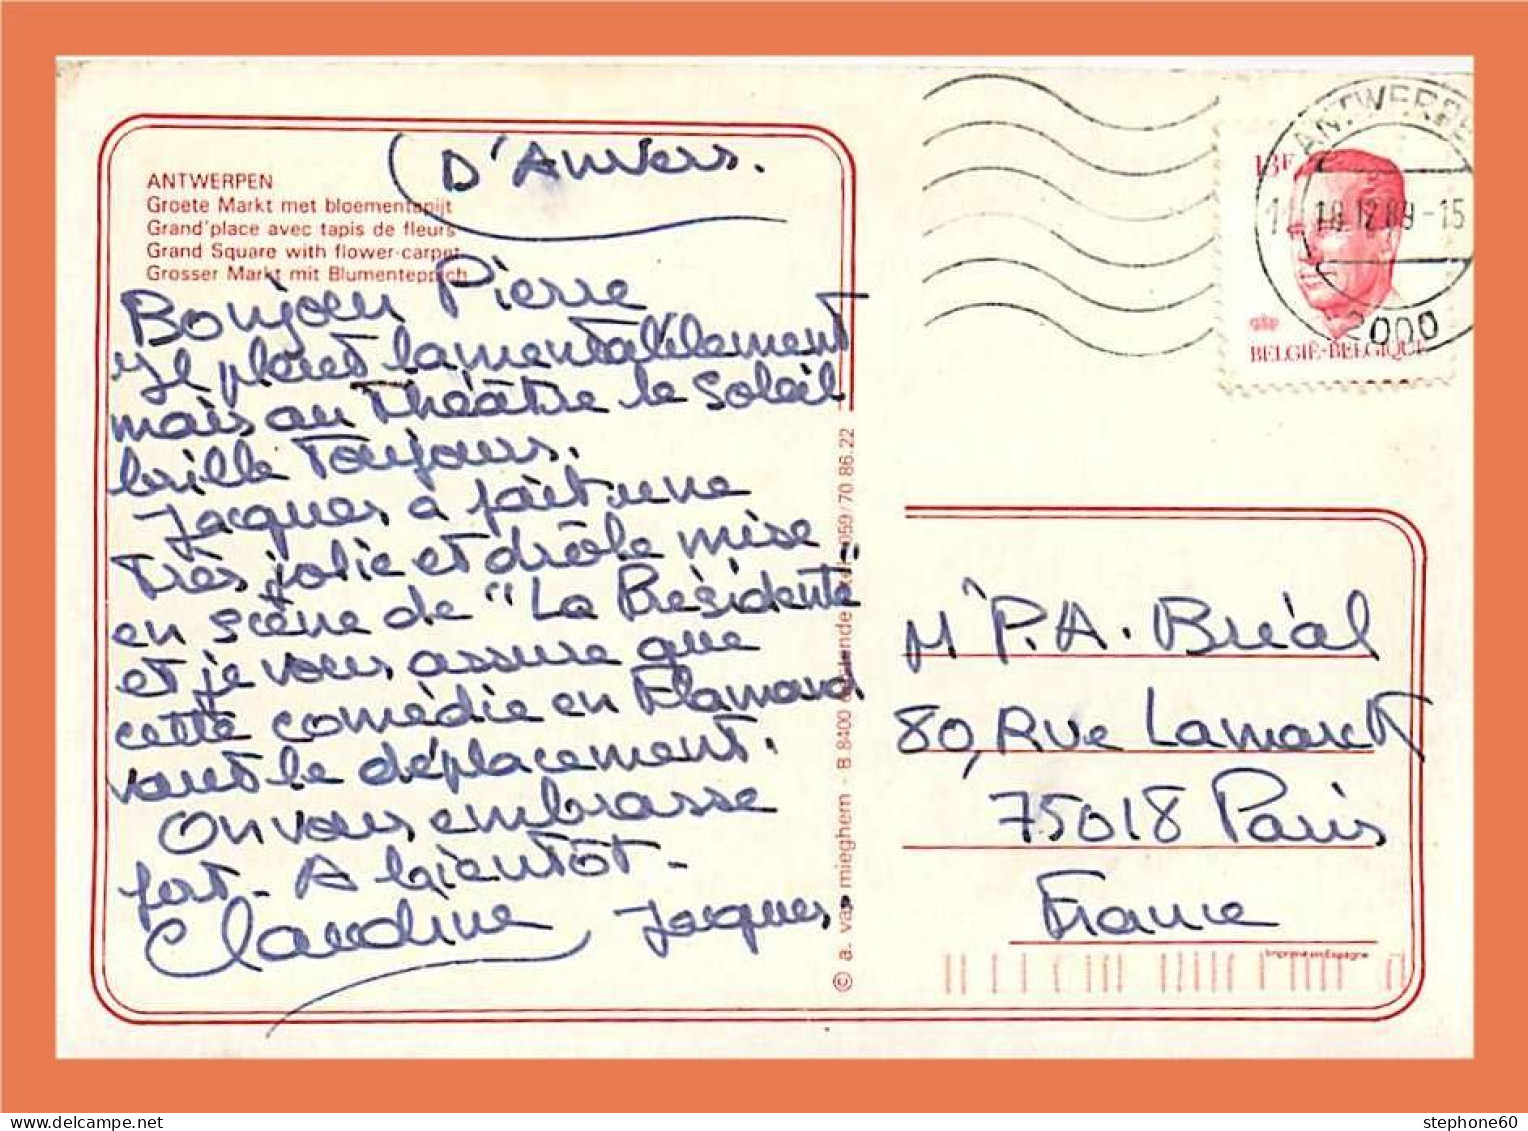 D'Anvers.
ANTWERPEN
Groete Markt met bloementapijt
Grand'place avec tapis de fleurs
Grand Square with flower-carpet
Grosser Markt mit Blumenteppich
Bonjour Pierre
Il pleut lamentablement
mais au Théâtre le soleil
brille toujours.
Jacques a fait une
très jolie et drôle mise
en scène de "La Présidente"
et je vous assure que
cette comédie en Flamand
vaut le déplacement.
On vous embrasse
fort - A bientôt -
Claudine Jacques
© a. van mieghem - B 8400 059/70 86.22
ANTWERPE
12 89-15
2000
13F
BELGIË-BELGIQUE
Mr P.A. Bréal
80, Rue Lamarck
75018 Paris
France
Imprimé en Espagne
stephone60